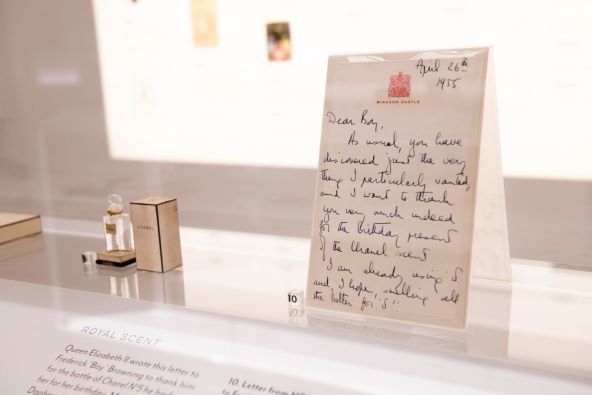 April 26th
1955
WINDSOR CASTLE
Dear Boy,
As usual, you have
discovered just the very
thing I particularly wanted,
and I want to thank
you very much indeed
for the birthday present
of the Chanel scent.
I am already using it
and, I hope, smelling all
the better for it!!
CHANEL
10
ROYAL SCENT
Queen Elizabeth II wrote this letter to
Frederick 'Boy' Browning to thank him
for the bottle of Chanel N°5 he had
her for her birthday.
10. Letter from